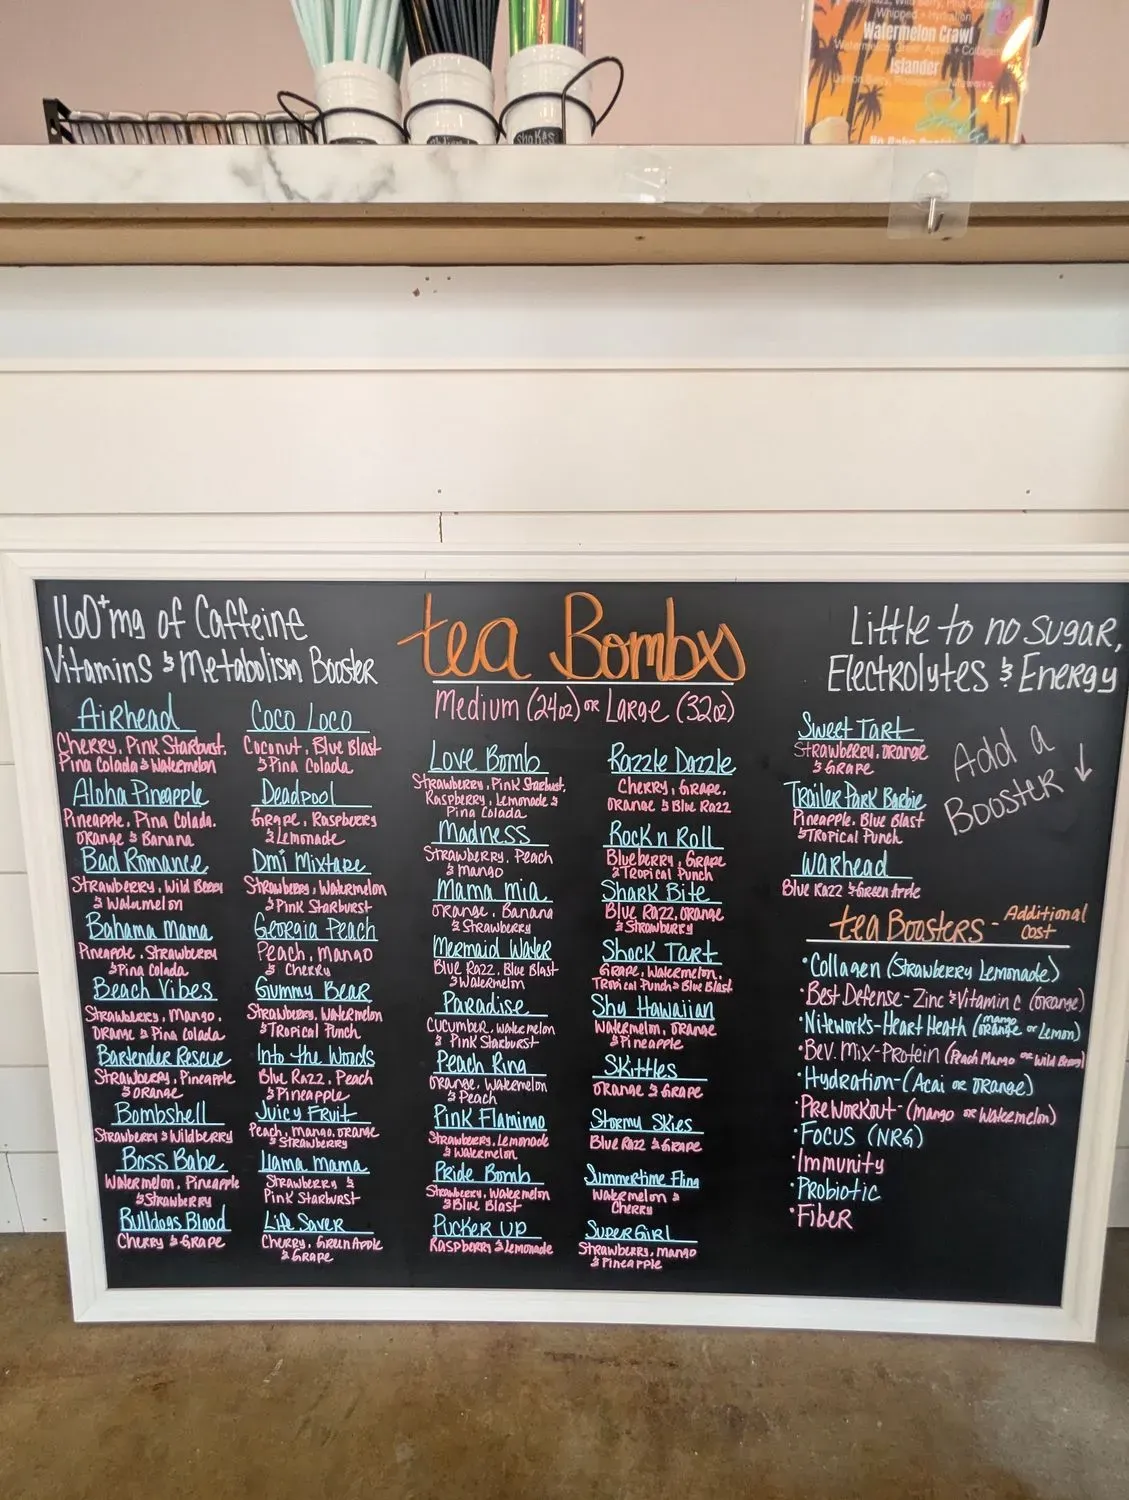 Whipped + Hydration
Watermelon Crawl
Watermelon, Green Apple + Collagen
Islander
Shakes
160+mg of Caffeine
Vitamins & Metabolism Booster
tea Bombs
Medium (24oz) or Large (32oz)
Little to no sugar,
Electrolytes & Energy
Airhead
Cherry, Pink Starburst,
Pina Colada & Watermelon
Aloha Pineapple
Pineapple, Pina Colada,
Orange & Banana
Bad Romance
Strawberry, Wild Berry
& Watermelon
Bahama Mama
Pineapple, Strawberry
& Pina Colada
Beach Vibes
Strawberry, Mango,
Orange & Pina Colada
Bartender Rescue
Strawberry, Pineapple
& Orange
Bombshell
Strawberry & Wildberry
Boss Babe
Watermelon, Pineapple
& Strawberry
Bulldogs Blood
Cherry & Grape
Coco Loco
Coconut, Blue Blast
& Pina Colada
Deadpool
Grape, Raspberry
& Lemonade
Dmi Mixtape
Strawberry, Watermelon
& Pink Starburst
Georgia Peach
Peach, Mango
& Cherry
Gummy Bear
Strawberry, Watermelon
& Tropical Punch
Into the Woods
Blue Razz, Peach
& Pineapple
Juicy Fruit
Peach, Mango, Orange
& Strawberry
Llama Mama
Strawberry &
Pink Starburst
Life Saver
Cherry, Green Apple
& Grape
Love Bomb
Strawberry, Pink Starbust,
Raspberry, Lemonade &
Pina Colada
Madness
Strawberry, Peach
& Mango
Mama mia
Orange, Banana
& Strawberry
Mermaid Water
Blue Razz, Blue Blast
& Watermelon
Paradise
Cucumber, Watermelon
& Pink Starburst
Peach Ring
Orange, Watermelon
& Peach
Pink Flamingo
Strawberry, Lemonade
& Watermelon
Pride Bomb
Strawberry, Watermelon
& Blue Blast
Pucker Up
Raspberry & Lemonade
Razzle Dazzle
Cherry, Grape,
Orange & Blue Razz
Rock n Roll
Blueberry, Grape
& Tropical Punch
Shark Bite
Blue Razz, Orange
& Strawberry
Shock Tart
Grape, Watermelon,
Tropical Punch & Blue Blast
Shy Hawaiian
Watermelon, Orange
& Pineapple
Skittles
Orange & Grape
Stormy Skies
Blue Razz & Grape
Summertime Fling
Watermelon &
Cherry
SuperGirl
Strawberry, Mango
& Pineapple
Sweet Tart
Strawberry, Orange
& Grape
Trailer Park Barbie
Pineapple, Blue Blast
& Tropical Punch
Warhead
Blue Razz & Green Apple
Add a
Booster
tea Boosters - Additional
Cost
•Collagen (Strawberry Lemonade)
•Best Defense - Zinc & Vitamin C (Orange)
•Niteworks-Heart Heath (mango orange or Lemon)
•Bev. Mix-Protein (Peach Mango or Wild Berry)
•Hydration-(Acai or Orange)
•PreWorkout-(Mango or Watermelon)
•Focus (NRG)
•Immunity
•Probiotic
•Fiber